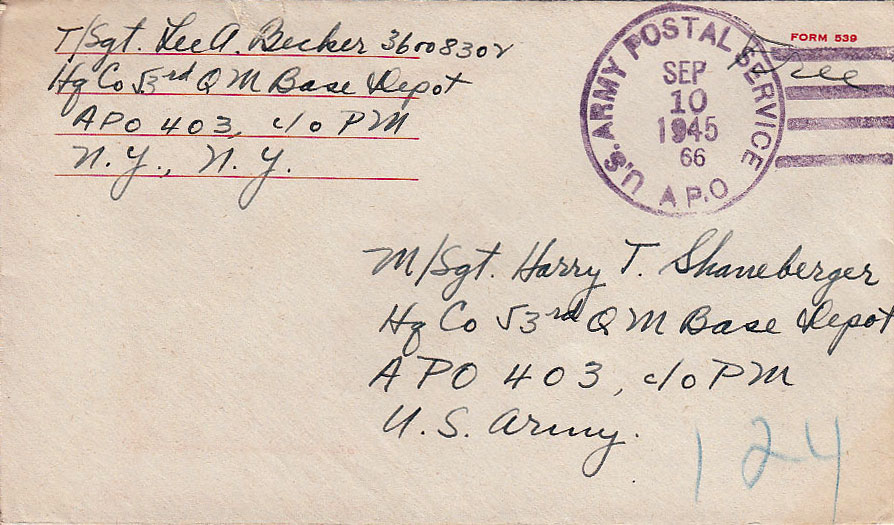 T/Sgt. Lee A. Becker 36008302
Hq Co 53rd Q M Base Depot
APO 403, c/o PM
N.Y., N.Y.
U.S. ARMY POSTAL SERVICE
SEP
10
1945
66
A.P.O
FORM 539
Free
M/Sgt. Harry T. Shaneberger
Hq Co 53rd Q M Base Depot
APO 403, c/o PM
U.S. Army.
124